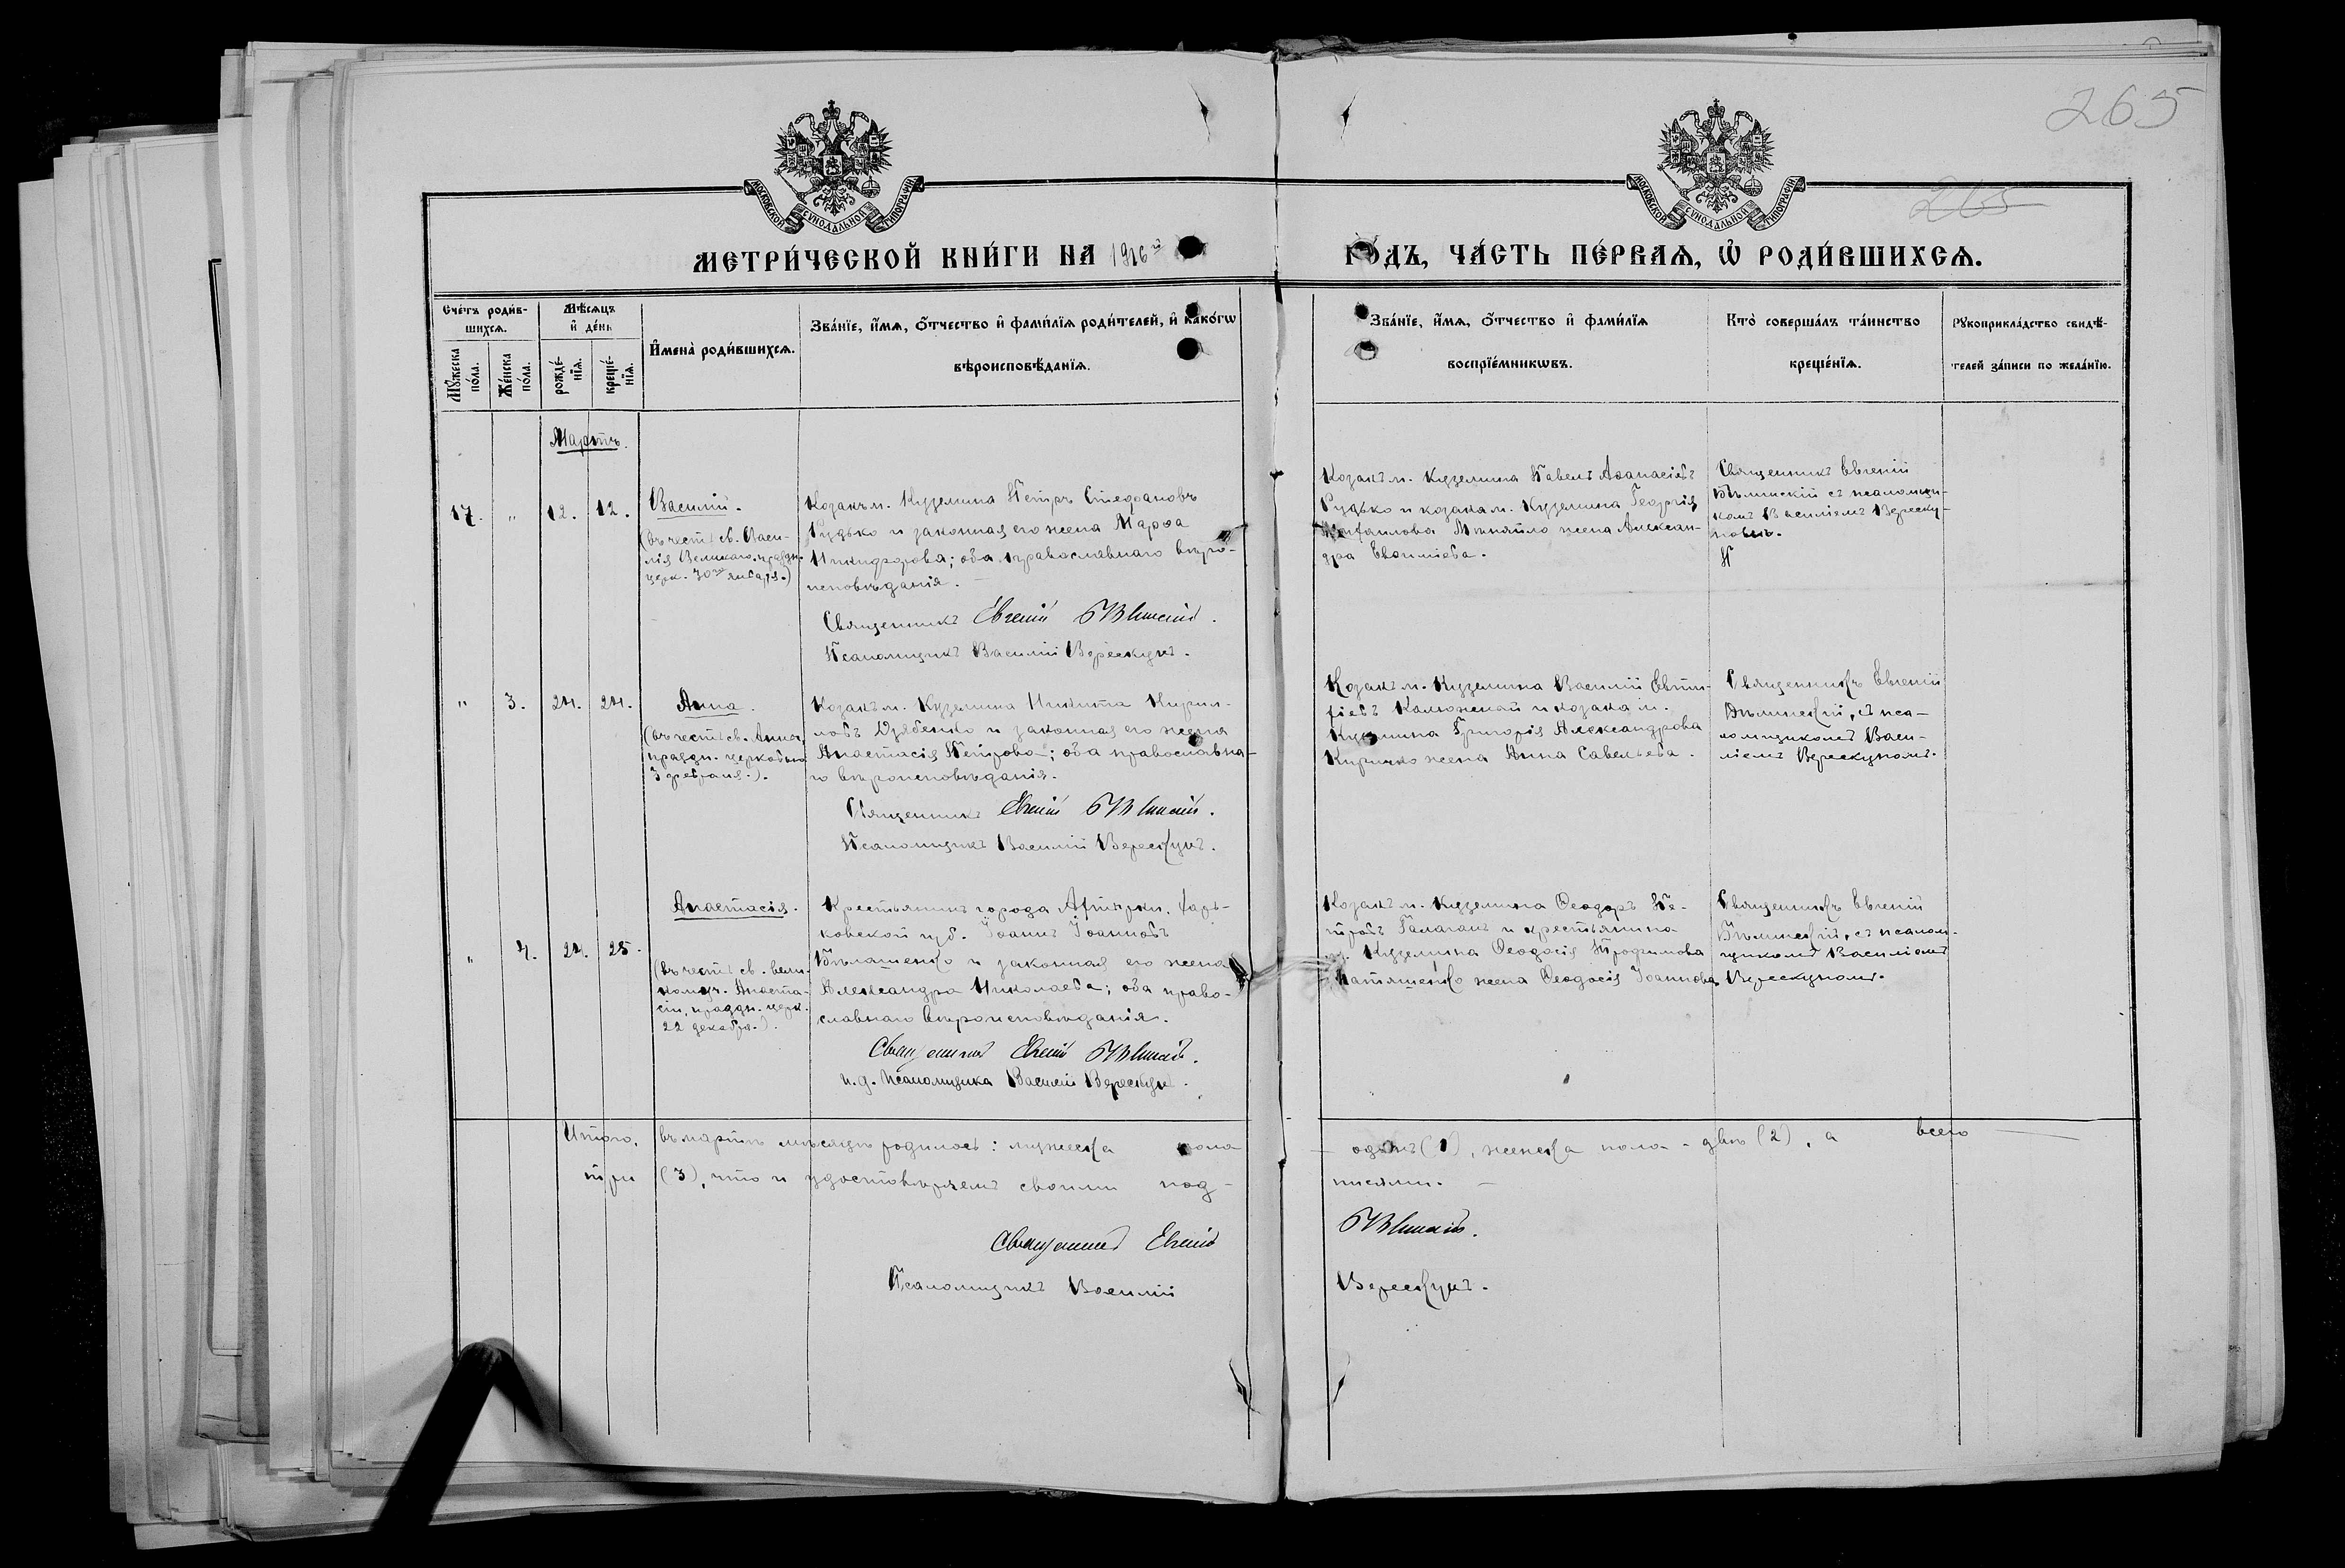 265
265
МОСКОВСКОЙ СУНОДАЛЬНОЙ ТИПОГРАФІИ
МОСКОВСКОЙ СУНОДАЛЬНОЙ ТИПОГРАФІИ
МЕТРИ́ЧЕСКОЙ КНИ́ГИ НА 1916 й
ГО́ДЪ, ЧА́СТЬ ПЕ́РВАѦ, Ѽ РОДИ́ВШИХСѦ.
Сче́тъ роди́в-
шихсѧ.
Мꙋ́жеска по́ла.
Же́нска по́ла.
Мѣ́сѧцъ
и҆ де́нь
рожде́-
нїѧ.
креще́-
нїѧ.
И҆мена̀ роди́вшихсѧ.
Зва́нїе, и҆́мѧ, ѻ҆́тчество и҆ фами́лїѧ роди́телей, и҆ како́гѡ
вѣроисповѣ́данїѧ.
Зва́нїе, и҆́мѧ, ѻ҆́тчество и҆ фами́лїѧ
воспрїе́мникѡвъ.
Кто̀ соверша́лъ та́инство
креще́нїѧ.
Рꙋкоприкла́дство свидѣ́-
телей за́писи по жела́нїю.
Мартъ.
17. " 12. 12.
Василій.
(въ честь св. Васи-
лія Великаго, праздн.
церк. 30го января.)
Козакъ м. Куземина Петръ Стефановъ
Рудько и законная его жена Марѳа
Никифорова; оба православнаго вѣро-
исповѣданія.
Священникъ Евгеній
Псаломщикъ Василій Верескунъ.
Козакъ м. Куземина Павелъ Аѳанасіевъ
Рудько и козака м. Куземина Георгія
жена Алексан-
дра Евѳиміева.
Священникъ Евгеній
съ псаломщи-
комъ Василіемъ Вереску-
номъ.
" 3. 24. 24.
Анна.
(въ честь св. Анны,
праздн. церковью
3 февраля.).
Козакъ м. Куземина Никита Кирил-
ловъ Дзябенко и законная его жена
Анастасія Петрова; оба православна-
го вѣроисповѣданія.
Священникъ Евгеній
Псаломщикъ Василій Верескунъ.
Козакъ м. Куземина Василій
Калюжный и козака м.
Куземина Григорія Александрова
Киричко жена Анна Савельева.
Священникъ Евгеній
съ пса-
ломщикомъ Васи-
ліемъ Верескуномъ.
" 4. 24. 25.
Анастасія.
(въ честь св. вели-
комуч. Анаста-
сіи, праздн. церк.
22 декабря.).
Крестьянинъ города Ахтырки, Харь-
ковской губ. Іоаннъ Іоанновъ
Бѣлашенко и законная его жена
Александра Николаева; оба право-
славнаго вѣроисповѣданія.
Священникъ Евгеній
и.д. псаломщика Василій Верескунъ.
Козакъ м. Куземина Ѳеодоръ Пе-
тровъ Галаганъ и крестьянина
м. Куземина Ѳеодосія Трофимова
жена Ѳеодосія Іоаннова.
Священникъ Евгеній
съ псалом-
щикомъ Василіемъ
Верескуномъ.
Итого, въ мартѣ мѣсяцѣ родилось: мужеска пола — одинъ (1), женска пола - двѣ (2), а всего
три (3), что и удостовѣряемъ своими под-
писями.
Священникъ Евгеній
Псаломщикъ Василій Верескунъ.